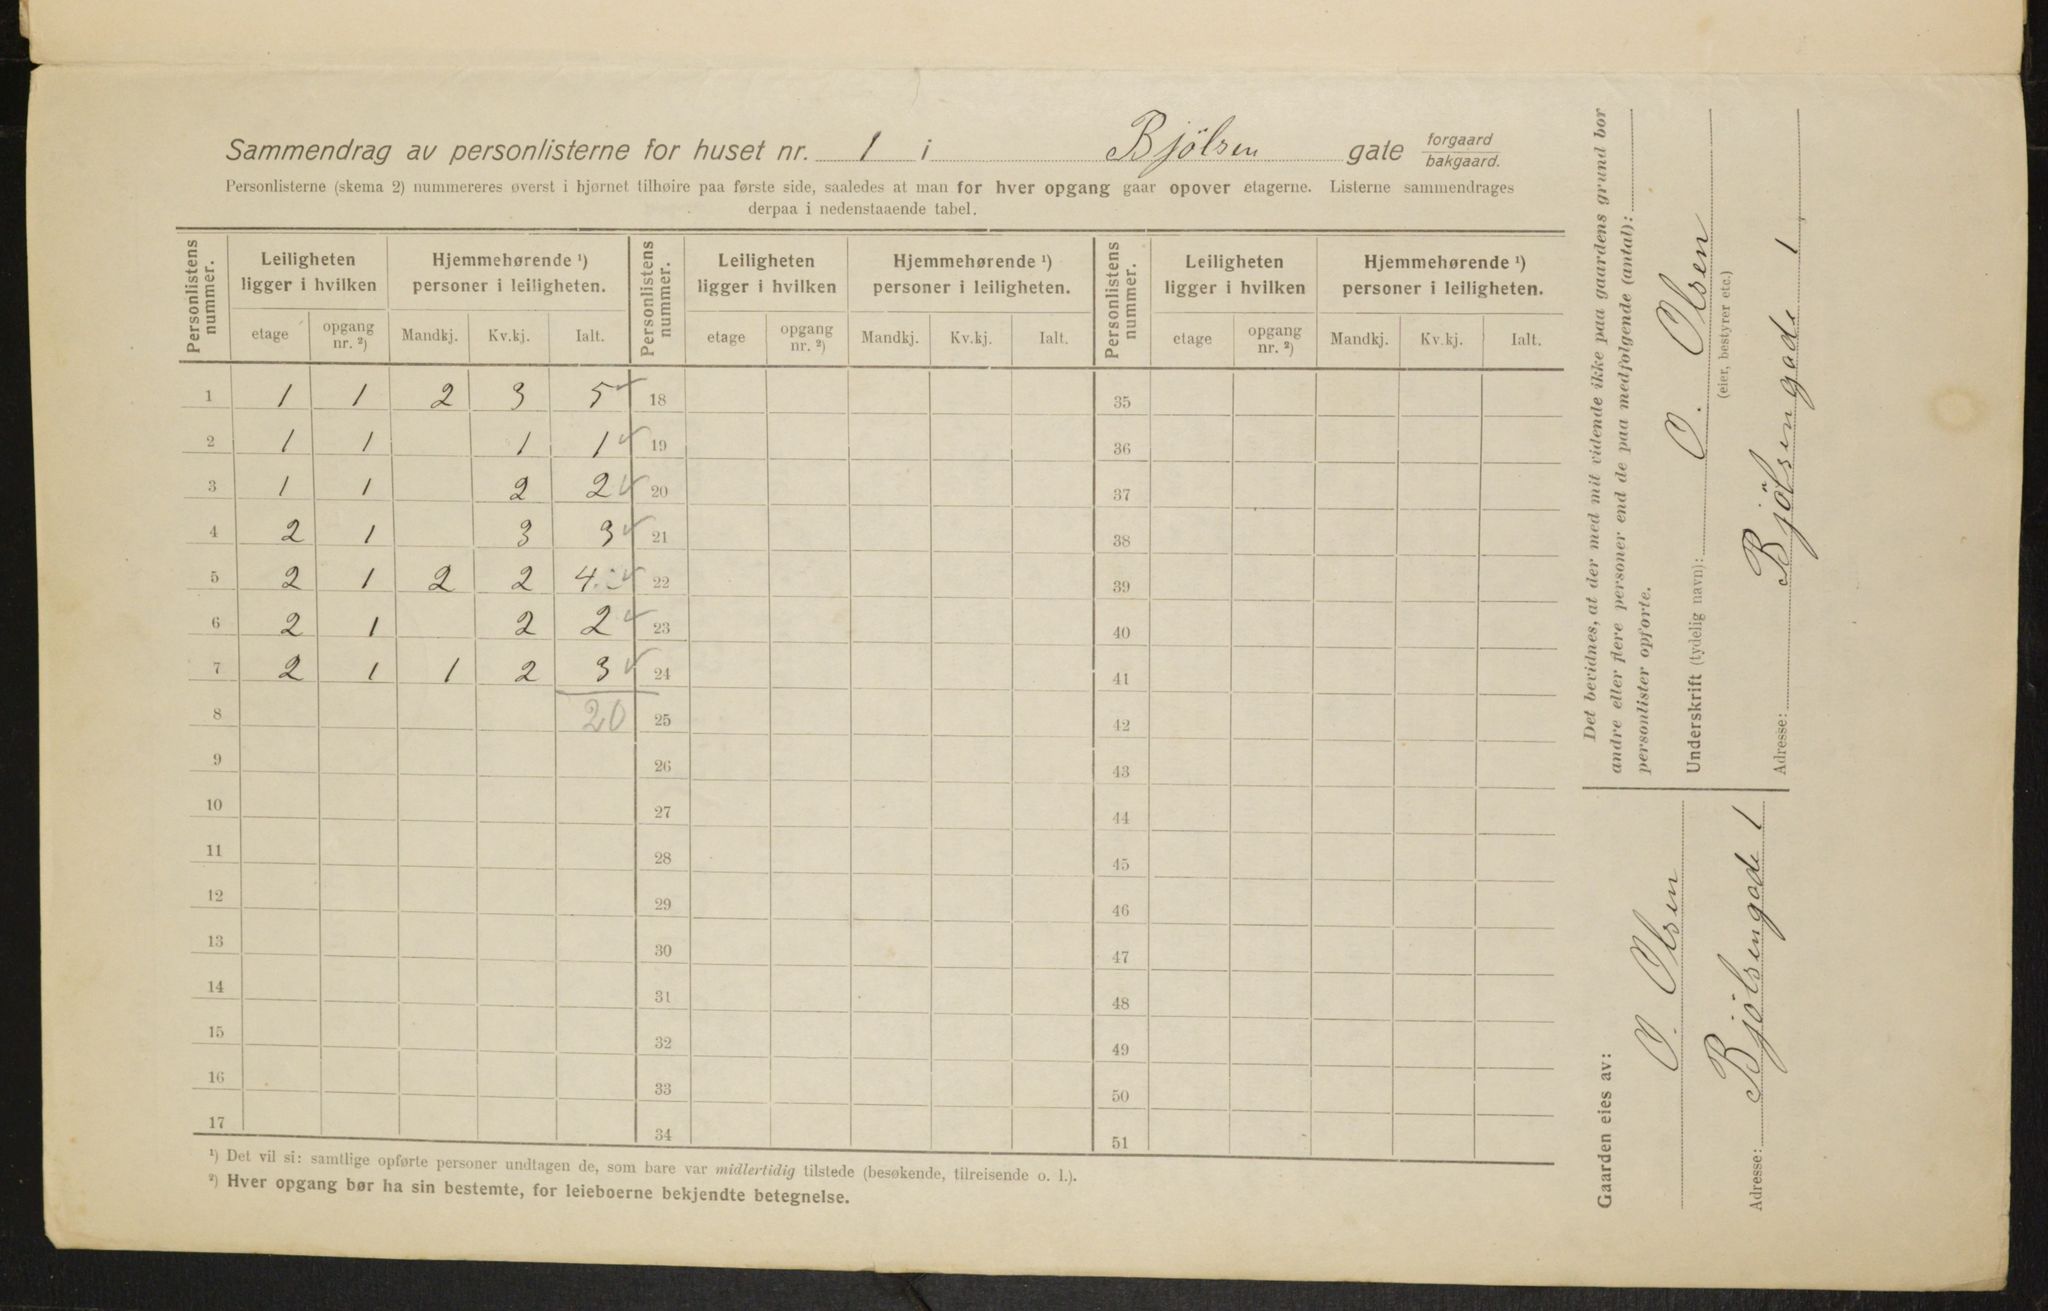 Sammendrag av personlisterne for huset nr. 1 i Bjölsen gate forgaard bakgaard.
Personlisterne (skema 2) nummereres øverst i bjørnet tilhøire paa første side, saaledes at man for hver opgang gaar opover etagerne. Listerne sammendrages
derpaa i nedenstaaende tabel.
Personlistens nummer. Leiligheten ligger i hvilken Hjemmehørende ¹) personer i leiligheten. Personlistens nummer. Leiligheten ligger i hvilken Hjemmehørende ¹) personer i leiligheten. Personlistens nummer. Leiligheten ligger i hvilken Hjemmehørende ¹) personer i leiligheten.
etage opgang nr. ²) Mandkj. Kv.kj. Ialt. etage opgang nr. ²) Mandkj. Kv.kj. Ialt. etage opgang nr. ²) Mandkj. Kv.kj. Ialt.
1 1 1 2 3 5 18 35
2 1 1 1 1 19 36
3 1 1 2 2 20 37
4 2 1 3 3 21 38
5 2 1 2 2 4 22 39
6 2 1 2 2 23 40
7 2 1 1 2 3 24 41
8 20 25 42
9 26 43
10 27 44
11 28 45
12 29 46
13 30 47
14 31 48
15 32 49
16 33 50
17 34 51
¹) Det vil si: samtlige opførte personer undtagen de, som bare var midlertidig tilstede (besøkende, tilreisende o. l.).
²) Hver opgang bør ha sin bestemte, for leieboerne bekjendte betegnelse.
Det bevidnes, at der med mit vidende ikke paa gaardens grund bor
andre eller flere personer end de paa medfølgende (antal):
personlister opførte.
Underskrift (tydelig navn): O. Olsen
(eier, bestyrer etc.)
Adresse: Bjölsengade 1
Gaarden eies av:
O. Olsen
Adresse: Bjölsengade 1